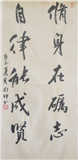 修身在砺志
自律能成贤